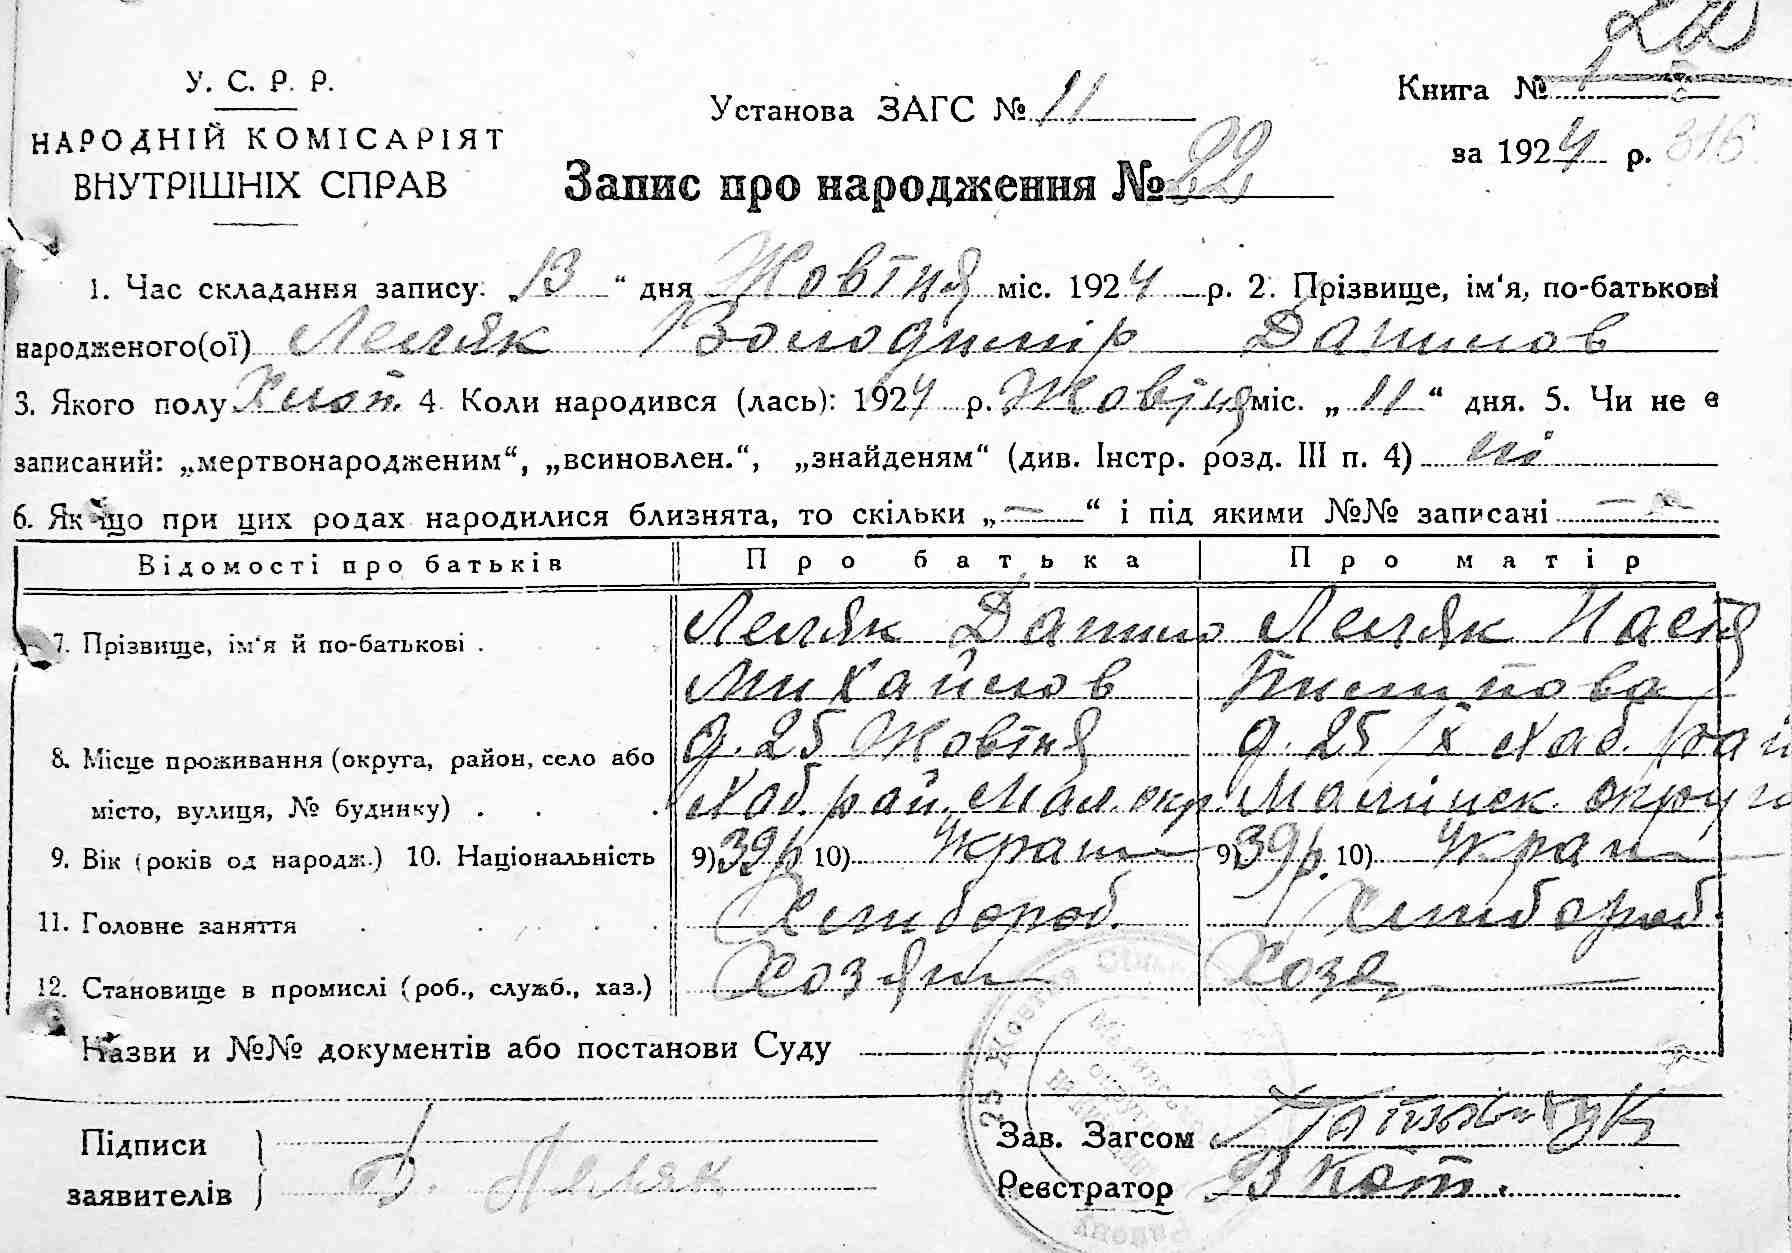 У. С. Р. Р.
НАРОДНІЙ КОМІСАРІЯТ
ВНУТРІШНІХ СПРАВ
Установа ЗАГС № 11
Запис про народження № 22
Книга № 1
за 1924 р. 316
1. Час складання запису: „13“ дня Жовтня міс. 1924 р. 2. Прізвище, ім'я, по-батькові
народженого(ої) Леляк Володимір Данилов
3. Якого полу Хлоп. 4. Коли народився (лась): 1924 р. Жовтня міс. „11“ дня. 5. Чи не є
записаний: „мертвонародженим“, „всиновлен.“, „знайденям“ (див. Інстр. розд. III п. 4) ні
6. Як що при цих родах народилися близнята, то скільки „—“ і під якими №№ записані —
Відомості про батьків Про батька Про матір
7. Прізвище, ім'я й по-батькові . Леляк Данило Леляк Настя
Михайлов Пилипова
8. Місце проживання (округа, район, село або д. 25 Жовтня д. 25/X Хаб. рай
місто, вулиця, № будинку) . Хаб. рай. Мал. окр. Малинск. округи
9. Вік (років од народж.) 10. Національність 9) 39 р. 10) Украї 9) 39 р. 10) Украї
11. Головне заняття Хлибороб. Хлибороб.
12. Становище в промислі (роб., служб., хаз.) Хозяін Хозя
Назви и №№ документів або постанови Суду
Підписи
заявителів Д. Леляк
Зав. Загсом
Реєстратор В Кот.
25 Жовтня